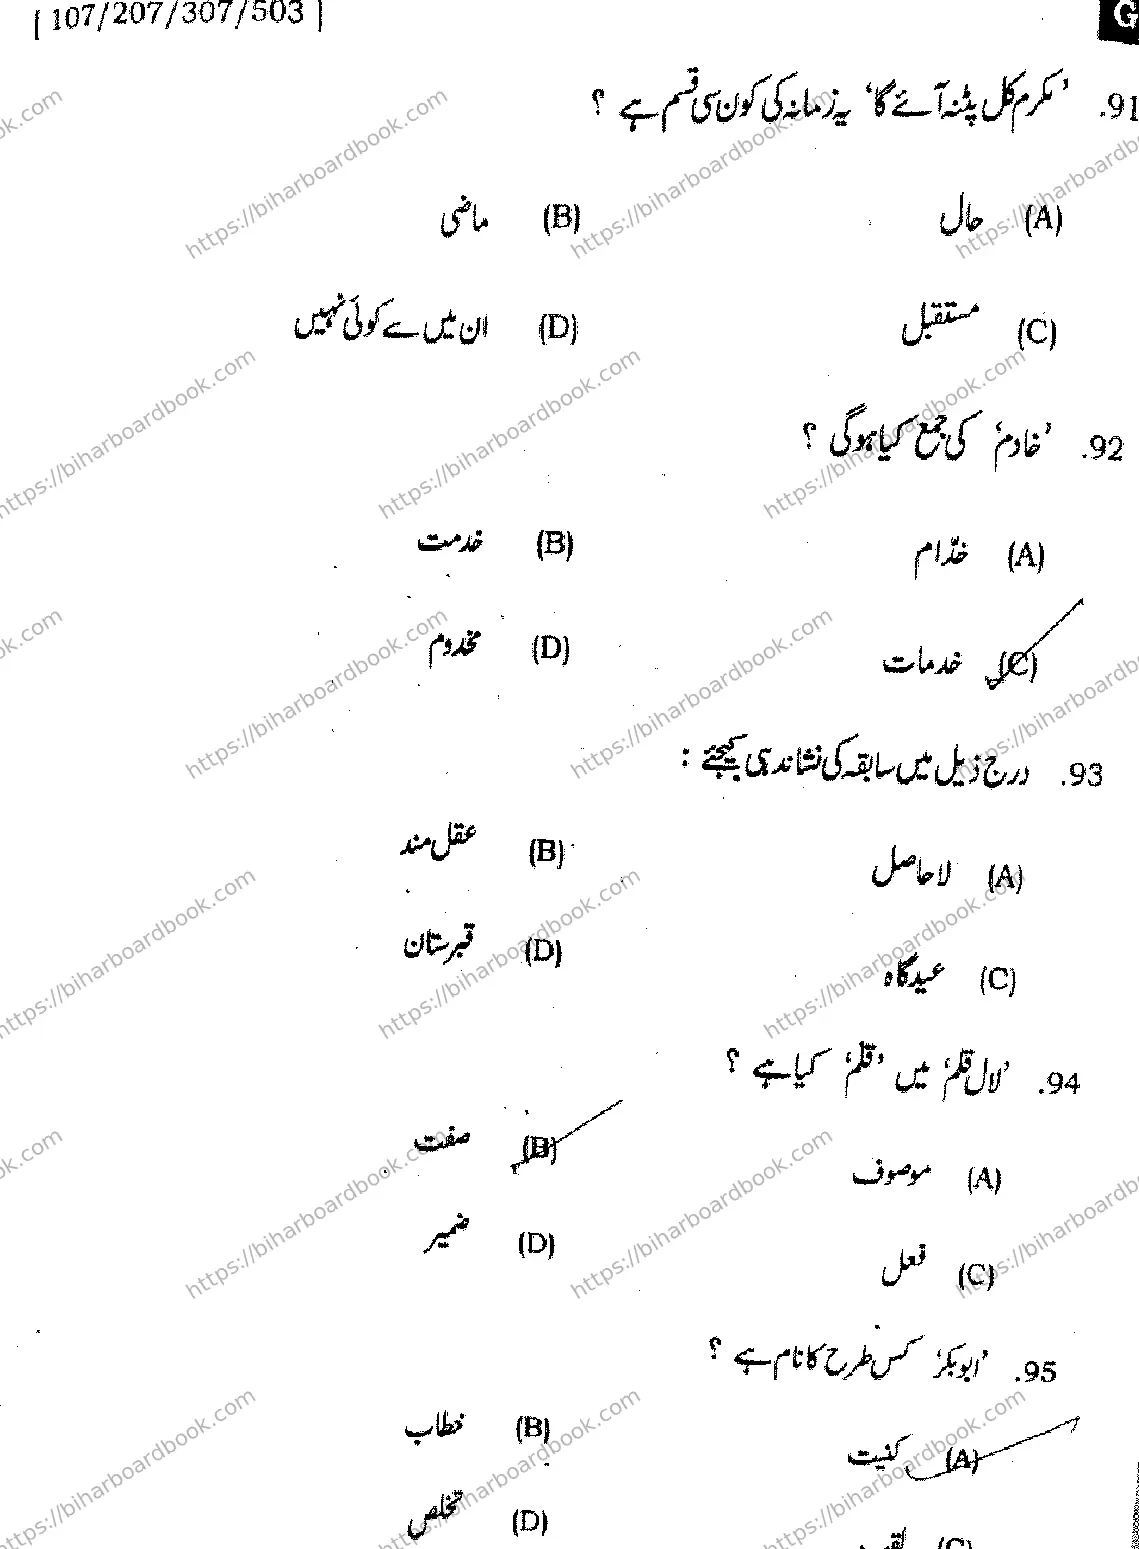 [ 107/207/307/503 ]
G
91. ’مکرم کل پٹنہ آئے گا‘ یہ زمانہ کی کون سی قسم ہے ؟
(A) حال (B) ماضی
(C) مستقبل (D) ان میں سے کوئی نہیں
92. ’خادم‘ کی جمع کیا ہوگی ؟
(A) خدّام (B) خدمت
(C) خدمات (D) مخدوم
93. درج ذیل میں سابقہ کی نشاندہی کیجئے :
(A) لاحاصل (B) عقل مند
(C) عیدگاہ (D) قبرستان
94. ’لال قلم‘ میں ’قلم‘ کیا ہے ؟
(A) موصوف (B) صفت
(C) فعل (D) ضمیر
95. ’ابوبکر‘ کس طرح کا نام ہے ؟
(A) کنیت (B) خطاب
(C) (D) تخلص
https://biharboardbook.com